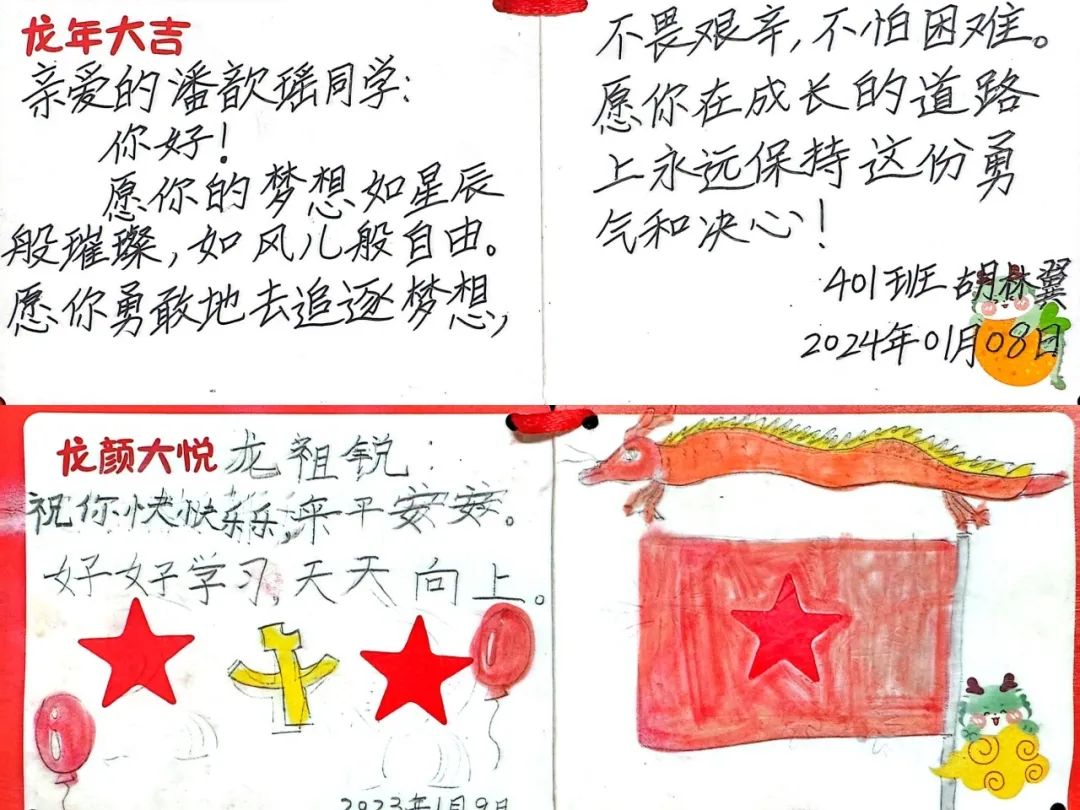 龙年大吉
亲爱的潘歆瑶同学:
你好!
愿你的梦想如星辰
般璀璨,如风儿般自由。
愿你勇敢地去追逐梦想,
不畏艰辛,不怕困难。
愿你在成长的道路
上永远保持这份勇
气和决心!
401班 胡林翼
2024年01月08日
龙颜大悦 龙祖锐:
祝你快快乐乐,来平安安。
好好学习,天天向上。
2023年1月9日